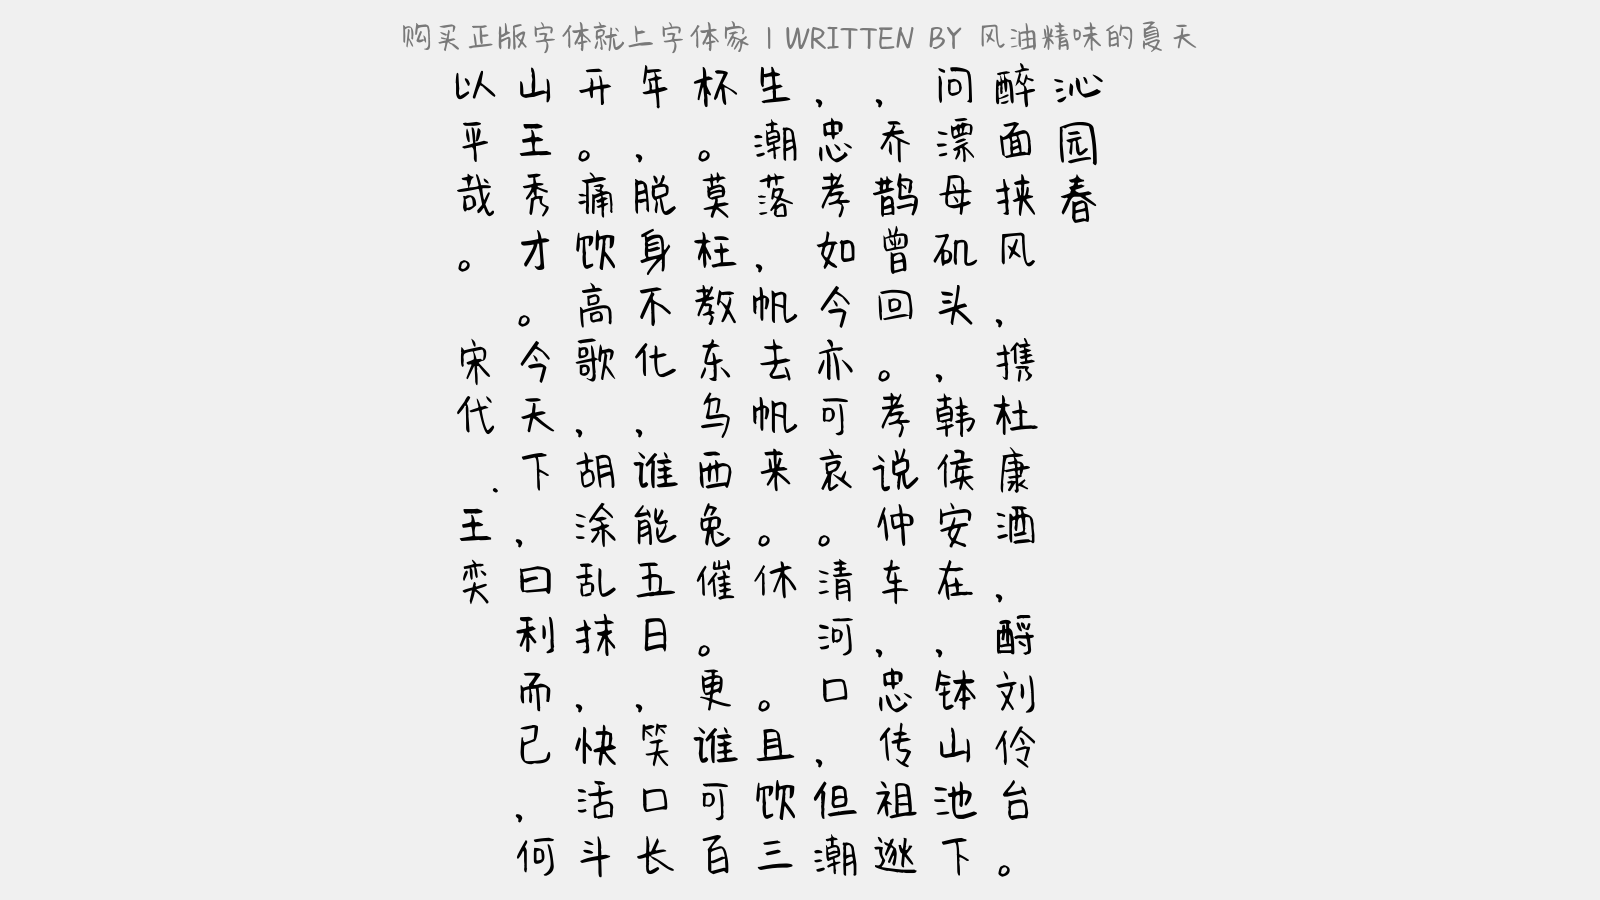 购买正版字体就上字体家 | WRITTEN BY 风油精味的夏天
沁园春
醉面挟风，携杜康酒，酹刘伶台。
问漂母矶头，韩侯安在，钵山池下
，乔鹊曾回。孝说仲车，忠传祖逖
，忠孝如今亦可哀。清河口，但潮
生潮落，帆去帆来。休 。且饮三
杯。莫枉教东乌西兔催。更谁可百
年，脱身不化，谁能五日，笑口长
开。痛饮高歌，胡涂乱抹，快活斗
山王秀才。今天下，曰利而已，何
以平哉。 宋代 . 王奕